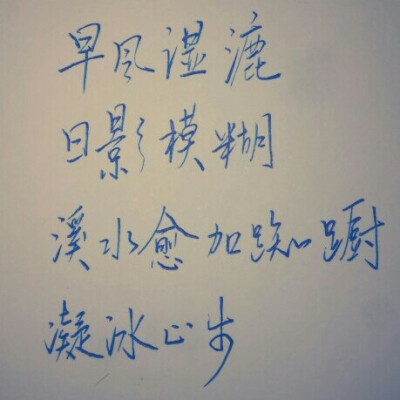 早风湿漉
日影模糊
溪水愈加踟蹰
凝冰止步